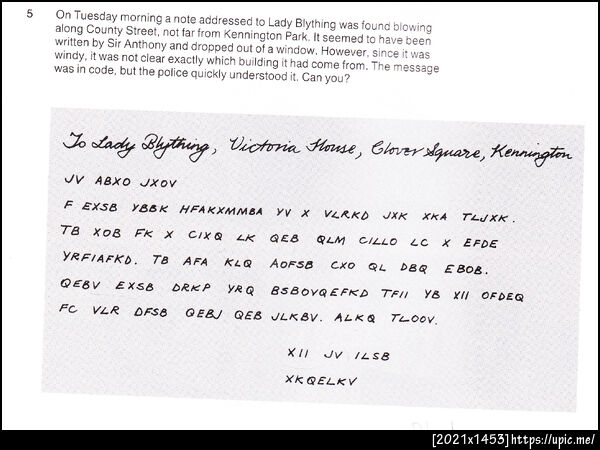 5 On Tuesday morning a note addressed to Lady Blything was found blowing
along County Street, not far from Kennington Park. It seemed to have been
written by Sir Anthony and dropped out of a window. However, since it was
windy, it was not clear exactly which building it had come from. The message
was in code, but the police quickly understood it. Can you?
To Lady Blything, Victoria House, Clover Square, Kennington
JV ABXO JXOV
F EXSB YBBK HFAKXMMBA YV X VLRKD JXK XKA TLJXK.
TB XOB FK X CIXQ LK QEB QLM CILLO LC X EFDE
YRFIAFKD. TB AFA KLQ AOFSB CXO QL DBQ EBOB.
QEBV EXSB DRKP YRQ BSBOVQEFKD TFII YB XII OFDEQ
FC VLR DFSB QEBJ QEB JLKBV. ALKQ TLOOV.
XII JV ILSB
XKQELKV
[2021x1453]https://upic.me/